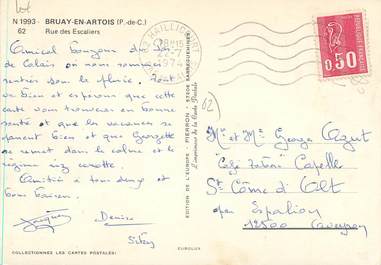 N 1993 - BRUAY-EN-ARTOIS (P.-de-C.)
62 Rue des Escaliers
Amical bonjour du Pas
de Calais où nous sommes
rentrés sous la pluie. Tout
va bien et espérons que cette
carte vous trouvera en bonne
santé et que les vacances se
passent bien et que Georgette
se remet dans le calme et le
régime sans carotte.
Amitiés à tous deux et
bons baisers.
Jacques Denise
COLLECTIONNEZ LES CARTES POSTALES!
EUROLUX
EDITION DE L'EUROPE - PIERRON - 57206 SARREGUEMINES
L'imprimeur de la Carte Postale
62 HAILLICOURT
1974
0,50
62
Mr et Me George
Café tabac Capelle
St Côme d'Olt
par Espalion
12500 Aveyron